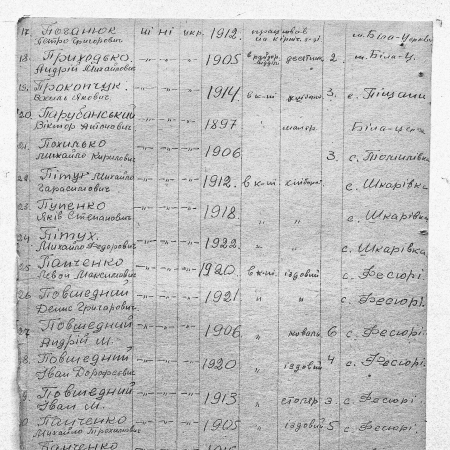 17. Поганюк Петро Григорович ні ні укр. 1912. працював на м. Біла-Церква
18. Приходько Андрій Михайлович -"- -"- -"- 1905 десятник 2. м. Біла-Ц.
19. Прокопчук. Василь Якович. -"- -"- -"- 1914 в к-ті 3. с. Піщана
20. Парубанський Віктор Антонович -"- -"- -"- 1897 " маляр. Біла-церк
21. Похилько Михайло Кирилович -"- -"- -"- 1906 3. с. Томилівка
22. Пітух Михайло Гарасимович -"- -"- -"- 1912. в к-ті с. Шкарівка
23. Пупенко Яків Степанович -"- -"- -"- 1918. " " с. Шкарівка
24. Пітух. Михайло Федорович -"- -"- -"- 1922. " " с. Шкарівка
25. Панченко Максимович -"- -"- -"- 1920. в к-ті їздовий с. Фесюрі.
26 Повшедний Денис Григорович. -"- -"- -"- 1921 " " с. Фесюрі.
27. Повшедний Андрій М. -"- -"- -"- 1906 " коваль 6 с. Фесюрі.
8. Повшедний Іван Дорофеєвич -"- -"- -"- 1920 " їздовий 4 с. Фесюрі.
9. Повшедний Іван М. -"- -"- -"- 1913 " столяр 3 с. Фесюрі.
0. Панченко Михайло Трохимович -"- -"- -"- 1905 " їздовий 5 с. Фесюрі.
Панченко